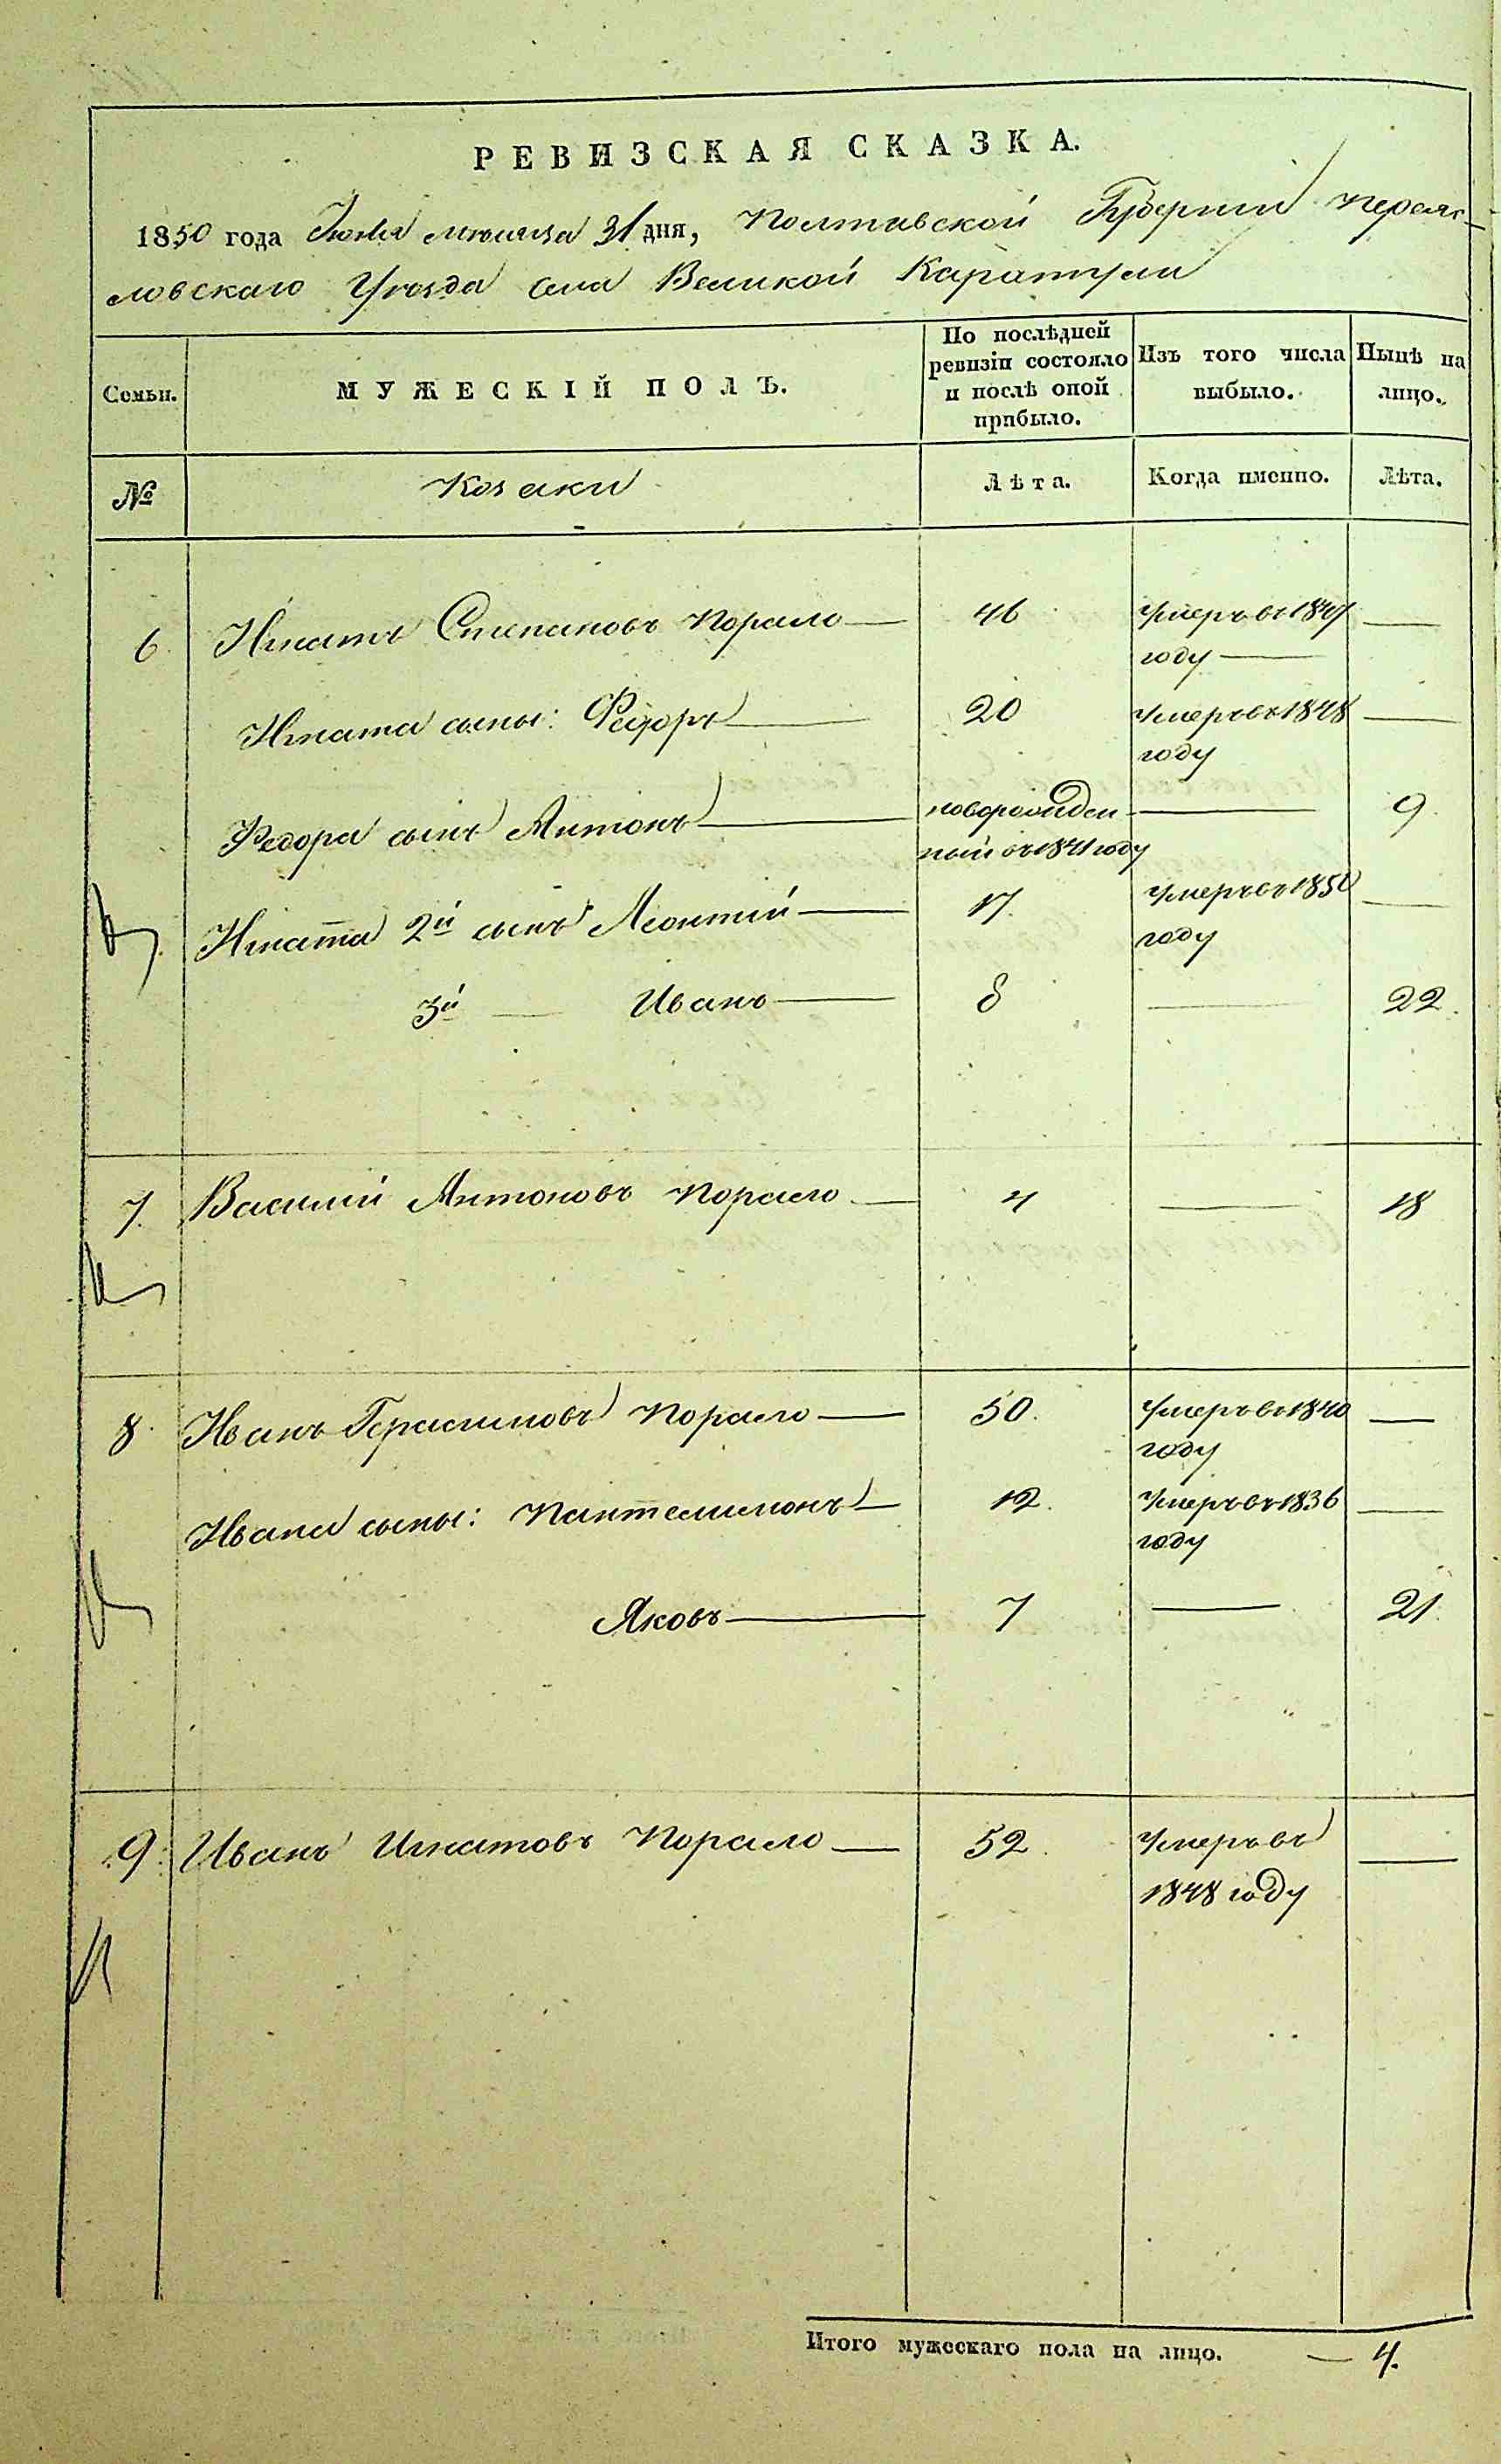 РЕВИЗСКАЯ СКАЗКА.
1850 года Іюля мѣсяца 31 дня, Полтавской Губерніи Переяс-
ловскаго Уѣзда села Великой Каратули
Семьи. МУЖЕСКІЙ ПОЛЪ. По послѣдней ревизіи состояло и послѣ оной прибыло. Изъ того числа выбыло. Нынѣ на лицо.
№ Козаки Лѣта. Когда именно. Лѣта.
6. Игнатъ Степановъ Порало — 46 Умеръ въ 1847 —
году —
Игната сыны: Федоръ — 20 Умеръ въ 1848 —
году
Федора сынъ Антонъ — новорожден- — 9.
ный въ 1841 году
Игната 2й сынъ Леонтій — 17. Умеръ въ 1850 —
году
3й — Иванъ — 8 — 22.
7. Василій Антоновъ Порало — 4 — 18
8. Иванъ Герасимовъ Порало — 50. Умеръ въ 1840 —
году
Ивана сыны: Пантелимонъ — 12. Умеръ въ 1836 —
году
Яковъ — 7 — 21.
9. Иванъ Игнатовъ Порало — 52. Умеръ въ —
1848 году
Итого мужескаго пола на лицо. — 4.